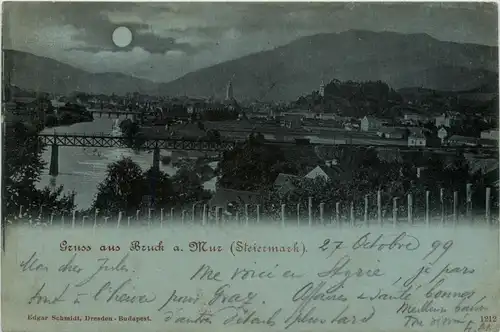 Gruss aus Bruck a. Mur (Steiermark).
27 Octobre 99
Mon cher Jules.
Me voici en Styrie, je pars
tout à l'heure pour Graz.
Affaires & santé bonnes
d'autres détails plus tard
Meilleurs
Edgar Schmidt, Dresden-Budapest.
1212